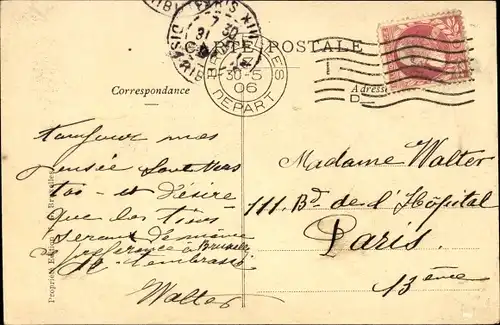 CARTE POSTALE
PARIS XIII
7 30
31
DISTRIB
BRUXELLES
30-5
06
DEPART
Correspondance
Adresse
toujours mes
pensée sont vers
toi - et désire
que les tiens
seront de même
à Bruxelles
Je t'embrasse
Walter
Madame Walter
111. Bd. de l'Hôpital
Paris.
13ème
Propriété Edition Bruxelles